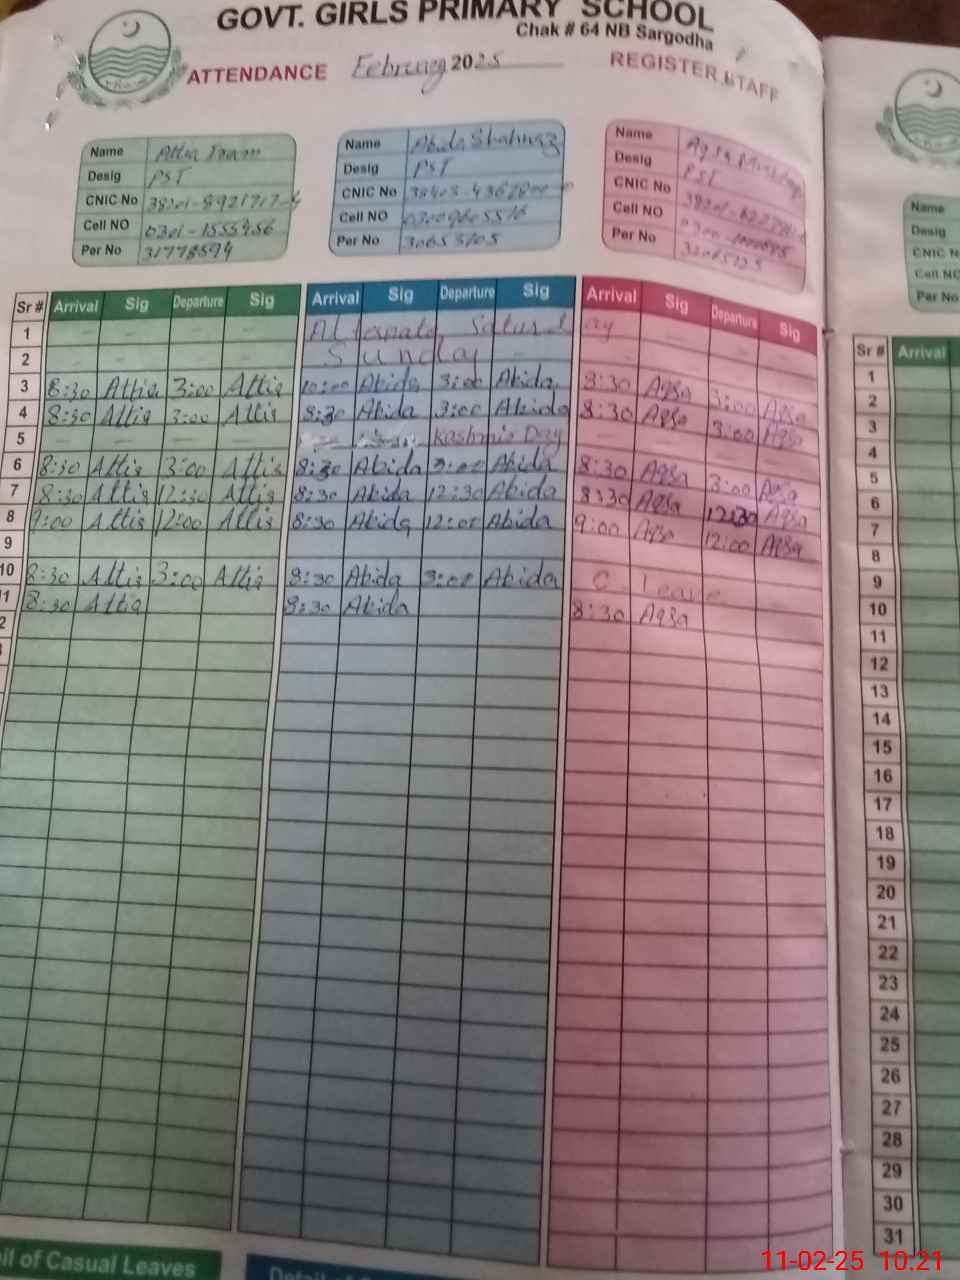 GOVT. GIRLS PRIMARY SCHOOL
Chak # 64 NB Sargodha
ATTENDANCE February 2025 REGISTER STAFF
Name Attia
Desig PST
CNIC No
Cell NO 0301-1555456
Per No 31778594
Name Abida Shahnaz
Desig PST
CNIC No
Cell NO
Per No
Name Aqsa
Desig PST
CNIC No
Cell NO
Per No
Sr # Arrival Sig Departure Sig Arrival Sig Departure Sig Arrival Sig Departure Sig
1 - - - - Alternate Saturday - - -
2 - - - - Sunday - - - -
3 8:30 Attia 3:00 Attia 10:00 Abida 3:00 Abida 8:30 Aqsa 3:00 Aqsa
4 8:30 Attia 3:00 Attia 8:30 Abida 3:00 Abida 8:30 Aqsa 3:00 Aqsa
5 - - - - Kashmir Day - - - -
6 8:30 Attia 3:00 Attia 8:30 Abida 3:00 Abida 8:30 Aqsa 3:00 Aqsa
7 8:30 Attia 12:30 Attia 8:30 Abida 12:30 Abida 8:30 Aqsa 12:30 Aqsa
8 9:00 Attia 12:00 Attia 8:30 Abida 12:00 Abida 9:00 Aqsa 12:00 Aqsa
9
10 8:30 Attia 3:00 Attia 8:30 Abida 3:00 Abida C. Leave
11 8:30 Attia 8:30 Abida 8:30 Aqsa
Name
Desig
CNIC N
Cell NO
Per No
Sr # Arrival
1
2
3
4
5
6
7
8
9
10
11
12
13
14
15
16
17
18
19
20
21
22
23
24
25
26
27
28
29
30
31
il of Casual Leaves
11-02-25 10:21